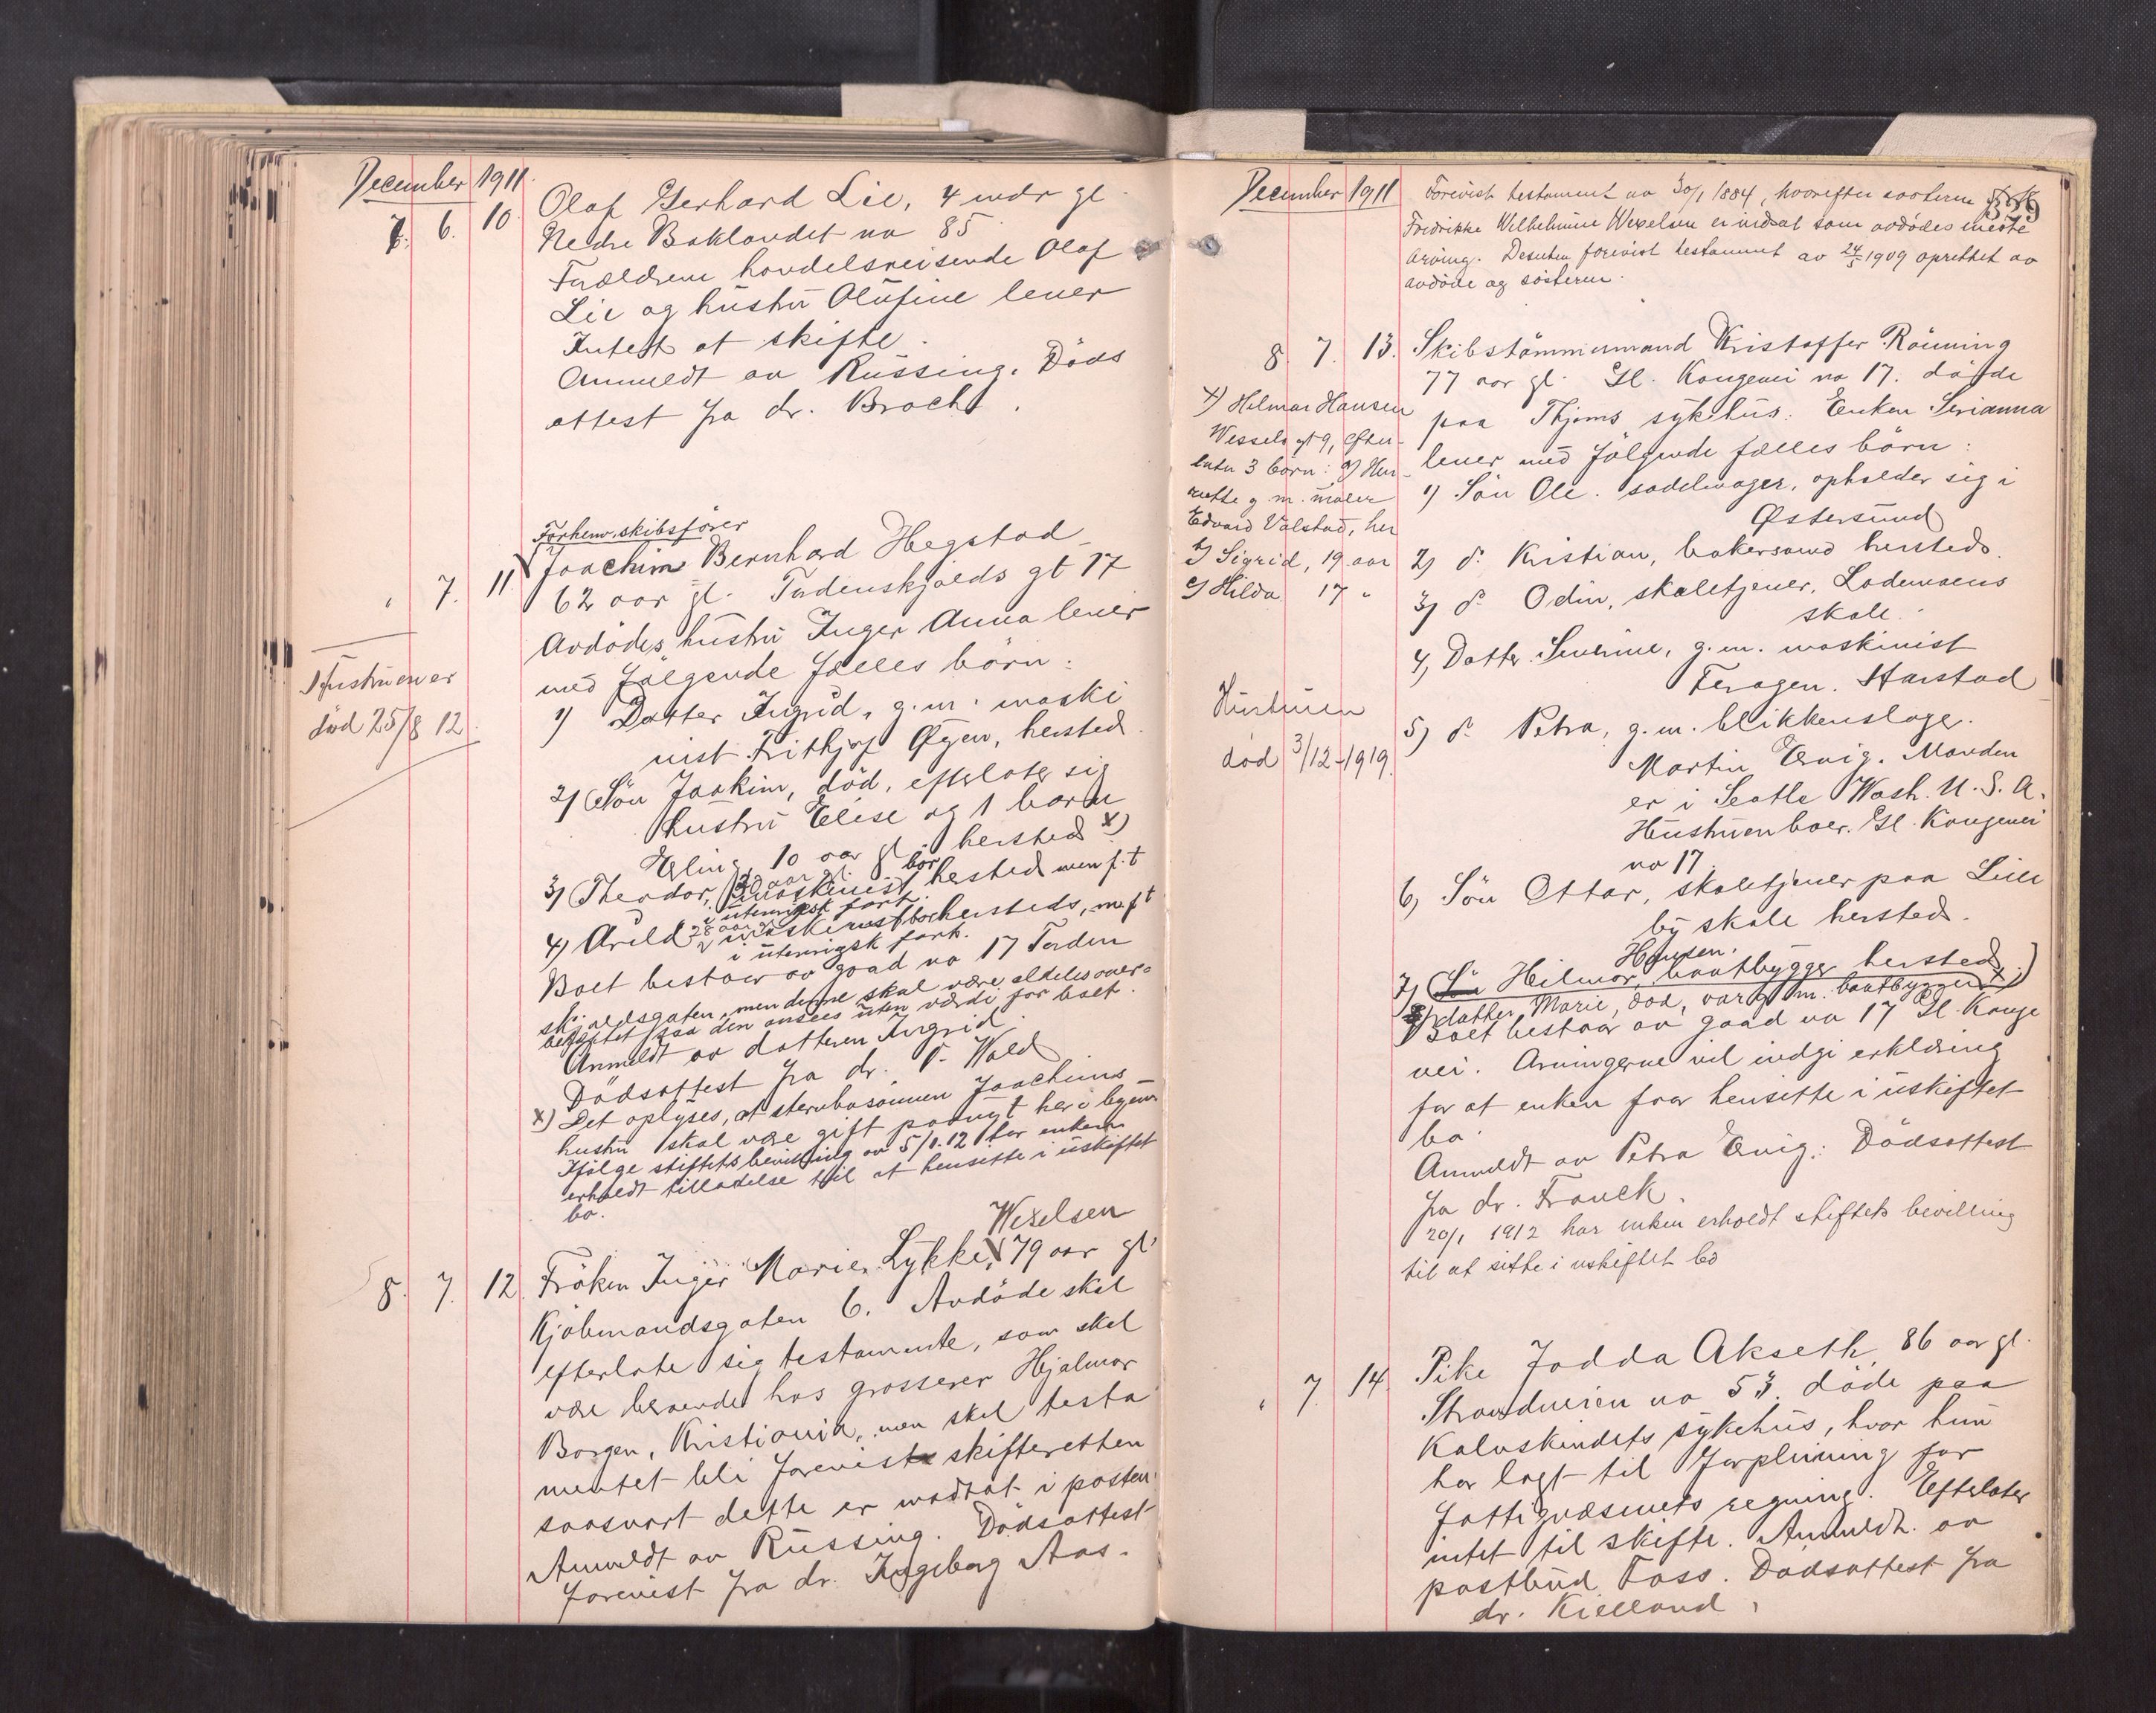 December 1911.
7. 6. 10. Olaf Gerhard Lie, 4 mdr gl.
Nedre Baklandet no 85.
Forældrene handelsreisende Olaf
Lie og hustru Olufine lever
Intet at skifte.
Anmeldt av Rüssing. Døds
attest fra dr. Broch.
Forhenv. skibsfører
" 7. 11. Joachim Bernhard Hegstad
62 aar gl. Tordenskjolds gt 17
Avdødes hustru Inger Anna lever
med følgende fælles børn:
1) Datter Ingrid, g.m. maski
nist Frithjof Øyen, hersted.
2) Søn Joakim, død, efterlater sig
hustru Elise og 1 barn
Erling, 10 aar gl. hersted x)
3) Theodor, 30 aar gl. maskinist, bor hersted men f.t
i utenrigsk fart.
4) Arild 28 aar maskinist bor hersteds, m. f t
i utenrigsk fart.
Boet bestaar av gaard no 17 Torden
skjoldsgaten, men denne skal være aldeles over-
beheftet saa den ansees uten værdi for boet.
Anmeldt av datteren Ingrid.
Dødsattest fra dr. P. Wold
x) Det oplyses, at sterubosønnen Joachims
hustru skal være gift paanyt her i byen.
Ifølge stiftets bevilling av 5/1.12 har enken
erholdt tilladelse til at hensitte i uskiftet
bo.
Hustruen er
død 25/8 12.
Wexelsen
8. 7. 12. Frøken Inger Marie Lykke, 79 aar gl.
Kjøbmandsgaten 6. Avdøde skal
efterlate sig testamente, som skal
være beroende hos grosserer Hjalmar
Borgen, Kristiania, men skal testa
mentet bli forevist skifteretten
saasnart dette er modtat i posten.
Anmeldt av Rüssing. Dødsattest
forevist fra dr. Ingeborg Aas.
December 1911
329
Forevist testament av 30/1 1884, hvorefter søsteren
Fredrikke Wilhelmine Wexelsen er indsat som avdødes eneste
arving. Desuten forevist testament av 24/5 1909 oprettet av
avdøde og søsteren.
8. 7. 13. Skibstømmermand Kristoffer Rønning
77 aar gl. Gl. Kongevei no 17. døde
paa Thjems sykehus. Enken Serianna
lever med følgende fælles børn:
1) Søn Ole. sadelmager, opholder sig i
Østersund
2) do Kristian, bakersvend hersteds.
3) do Odin, skoletjener, Lademoens
skole.
4) Datter Severine, g.m. maskinist
Feragen. Harstad
5) do Petra, g.m. blikkenslager
Martin Evig. Manden
er i Seatle Wash. U.S.A.
Hustruen boer Gl. Kongevei
no 17.
6) Søn Ottar, skoletjener paa Lilleby
skole hersted.
Hansen.
7) Søn Hilmar, baatbygger hersted
datter Marie, død, var g m. baatbygger x)
Boet bestaar av gaard no 17 Gl. Konge
vei. Arvingerne vil indgi erklæring
for at enken faar hensitte i uskiftet
bo.
Anmeldt av Petra Evig. Dødsattest
fra dr. Franck.
20/1 1912 har enken erholdt stiftets bevilling
til at sitte i uskiftet bo
x) Hilmar Hansen
Wessels gt 9, efter-
later 3 børn: a) Hen-
riette g. m. maler
Edvard Valstad, her
b) Sigrid, 19 aar
c) Hilda 17 "
Hustruen
død 3/12-1919.
" 7. 14. Pike Jodda Akseth, 86 aar gl.
Strandveien no 53. døde paa
Kalvskindets sykehus, hvor hun
har lagt til forpleining for
fattigvæsenets regning. Efterlater
intet til skifte. Anmeldt av
postbud Foss. Dødsattest fra
dr. Kielland.